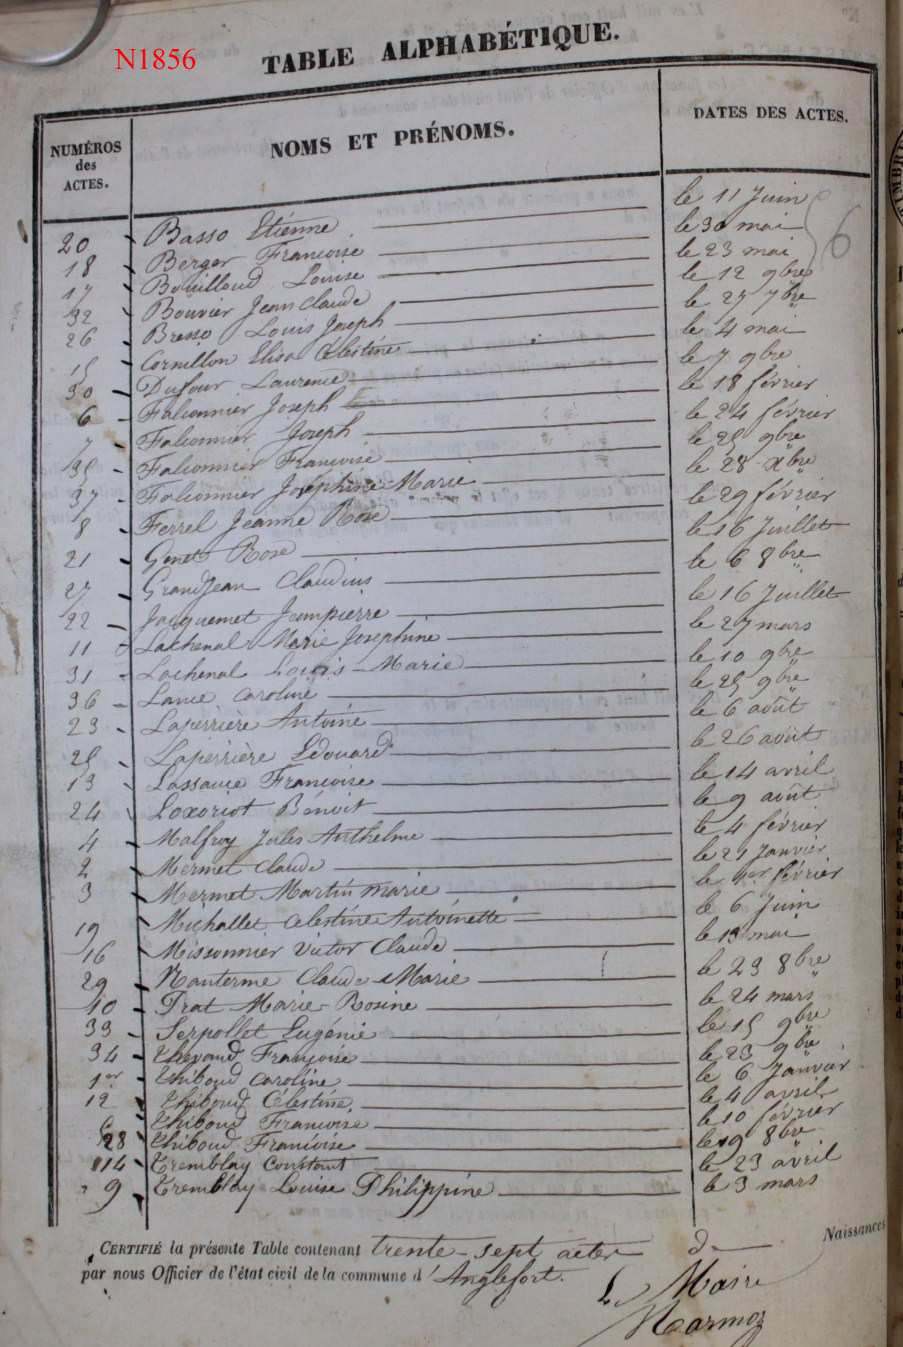 N1856
TABLE ALPHABÉTIQUE.
NUMÉROS des ACTES. NOMS ET PRÉNOMS. DATES DES ACTES.
20 Basso Etienne le 11 Juin
18 Berger Françoise le 30 mai
17 Bouilloud Louise le 23 mai
32 Bouvier Jean Claude le 12 9bre
26 Bresso Louis Joseph le 27 7bre
15 Cornillon Elisa Célestine le 4 mai
30 Dufour Laurence le 7 9bre
6 Falconnier Joseph le 18 février
7 Falconnier Joseph le 24 février
35 Falconnier Françoise le 25 9bre
37 Falconnier Joséphine Marie le 28 Xbre
8 Ferrel Jeanne Rose le 29 février
21 Genet Rose le 16 Juillet
27 Grandjean Claudius le 6 8bre
22 Jacquemet Jeanpierre le 16 Juillet
11 Lachenal Marie Josephine le 27 mars
31 Lachenal Louis Marie le 10 9bre
36 Lance Caroline le 25 9bre
23 Laperrière Antoine le 6 août
25 Laperrière Edouard le 26 août
13 Lassauce Françoise le 14 avril
24 Loxoriot Benoit le 9 août
4 Malfroy Jules Anthelme le 4 février
2 Mermet Claude le 21 Janvier
3 Mermet Martin marie le 1er février
19 Michallet Celestine Antoinette le 6 Juin
16 Missonnier Victor Claude le 13 mai
29 Nanterme Claude Marie le 29 8bre
10 Prat Marie-Rosine le 24 mars
33 Serpollet Eugénie le 15 9bre
34 Thevand Françoise le 23 9bre
1er Thiboud Caroline le 6 Janvier
12 Thiboud Celestine le 4 avril
Thiboud Francoise le 10 février
28 Thiboud Francoise le 19 8bre
14 Tremblay Constant le 23 avril
9 Tremblay Louise Philippine le 3 mars
6
Naissances
CERTIFIÉ la présente Table contenant trente-sept actes de
par nous Officier de l'état civil de la commune d'Anglefort.
Le Maire
Marmoz